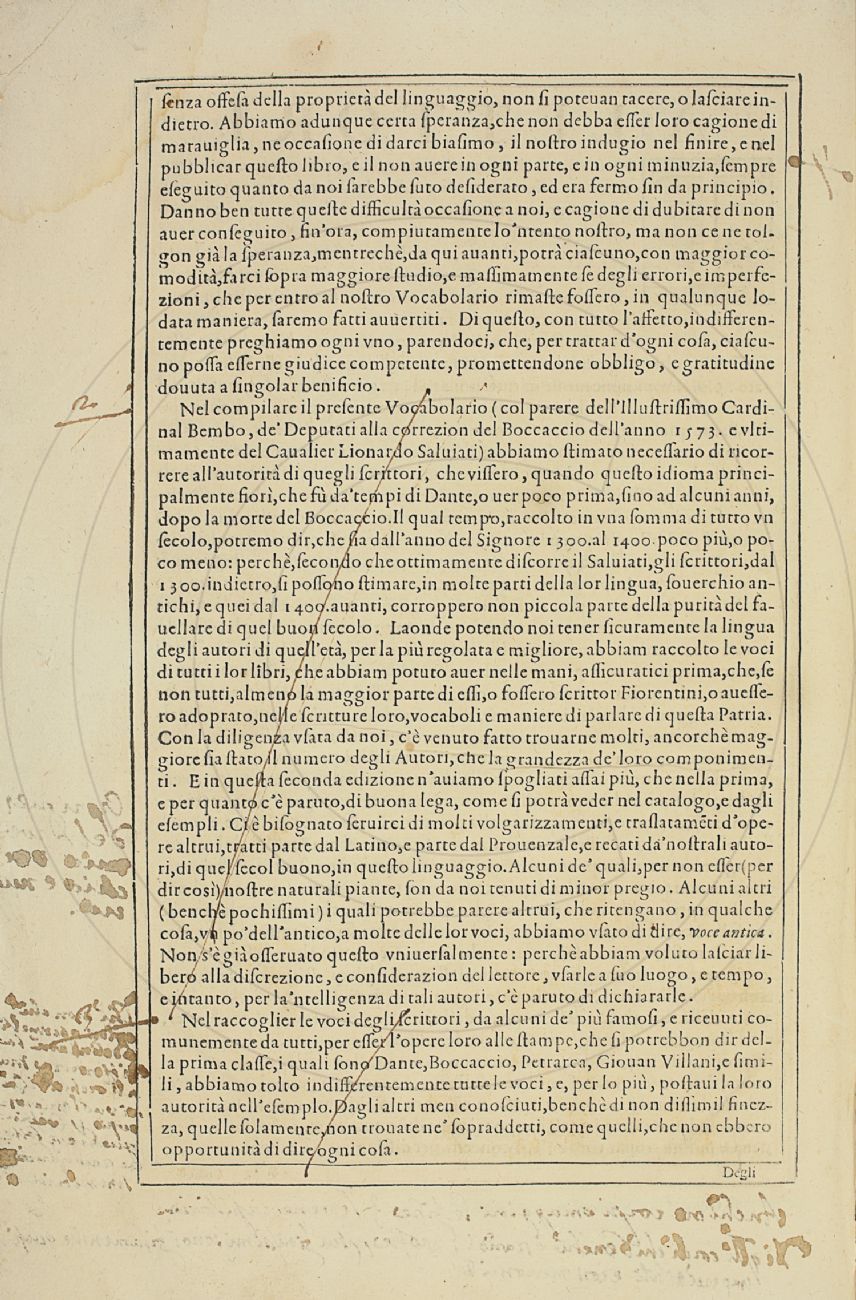 ſenza offeſa della proprietà del linguaggio, non ſi poteuan tacere, o laſciare in-
dietro. Abbiamo adunque certa ſperanza, che non debba eſſer loro cagione di
marauiglia, ne occaſione di darci biaſimo, il noſtro indugio nel finire, e nel
pubblicar queſto libro, e il non auere in ogni parte, e in ogni minuzia, ſempre
eſeguito quanto da noi ſarebbe ſuto deſiderato, ed era fermo ſin da principio.
Danno ben tutte queſte difficultà occaſione a noi, e cagione di dubitare di non
auer conſeguito, ſin'ora, compiutamente lo'ntento noſtro, ma non ce ne tol-
gon già la ſperanza, mentrechè, da qui auanti, potrà ciaſcuno, con maggior co-
modità, farci ſopra maggiore ſtudio, e maſſimamente ſe degli errori, e imperfe-
zioni, che per entro al noſtro Vocabolario rimaſte foſſero, in qualunque lo-
data maniera, ſaremo fatti auuertiti. Di queſto, con tutto l'affetto, indifferen-
temente preghiamo ogni vno, parendoci, che, per trattar d'ogni coſa, ciaſcu-
no poſſa eſſerne giudice competente, promettendone obbligo, e gratitudine
douuta a ſingolar benificio.
Nel compilare il preſente Vocabolario (col parere dell'Illuſtriſſimo Cardi-
nal Bembo, de' Deputati alla correzion del Boccaccio dell'anno 1573. e vlti-
mamente del Caualier Lionardo Saluiati) abbiamo ſtimato neceſſario di ricor-
rere all'autorità di quegli ſcrittori, che viſſero, quando queſto idioma princi-
palmente fiorì, che fù da' tempi di Dante, o uer poco prima, ſino ad alcuni anni,
dopo la morte del Boccaccio. Il qual tempo, raccolto in vna ſomma di tutto vn
ſecolo, potremo dir, che ſia dall'anno del Signore 1300. al 1400. poco più, o po-
co meno: perchè, ſecondo che ottimamente diſcorre il Saluiati, gli ſcrittori, dal
1300. indietro, ſi poſſono ſtimare, in molte parti della lor lingua, ſouerchio an-
tichi, e quei dal 1400. auanti, corroppero non piccola parte della purità del fa-
uellare di quel buon ſecolo. Laonde potendo noi tener ſicuramente la lingua
degli autori di quell'età, per la più regolata e migliore, abbiam raccolto le voci
di tutti i lor libri, che abbiam potuto auer nelle mani, aſſicuratici prima, che, ſe
non tutti, almeno la maggior parte di eſſi, o foſſero ſcrittor Fiorentini, o aueſſe-
ro adoprato, nelle ſcritture loro, vocaboli e maniere di parlare di queſta Patria.
Con la diligenza vſata da noi, c'è venuto fatto trouarne molti, ancorchè mag-
giore ſia ſtato il numero degli Autori, che la grandezza de' loro componimen-
ti. E in queſta ſeconda edizione n'auiamo ſpogliati aſſai più, che nella prima,
e per quanto c'è paruto, di buona lega, come ſi potrà veder nel catalogo, e dagli
eſempli. Ci è biſognato ſeruirci di molti volgarizzamenti, e traſlatamẽti d'ope-
re altrui, tratti parte dal Latino, e parte dal Prouenzale, e recati da' noſtrali auto-
ri, di quel ſecol buono, in queſto linguaggio. Alcuni de' quali, per non eſſer (per
dir così) noſtre naturali piante, ſon da noi tenuti di minor pregio. Alcuni altri
(benchè pochiſſimi) i quali potrebbe parere altrui, che ritengano, in qualche
coſa, vn po' dell'antico, a molte delle lor voci, abbiamo vſato di dire, voce antica.
Non s'è già oſſeruato queſto vniuerſalmente: perchè abbiam voluto laſciar li-
bero alla diſcrezione, e conſiderazion del lettore, vſarle a ſuo luogo, e tempo,
e intanto, per la'ntelligenza di tali autori, c'è paruto di dichiararle.
Nel raccoglier le voci degli ſcrittori, da alcuni de' più famoſi, e riceuuti co-
munemente da tutti, per eſſer l'opere loro alle ſtampe, che ſi potrebbon dir del-
la prima claſſe, i quali ſono Dante, Boccaccio, Petrarca, Giouan Villani, e ſimi-
li, abbiamo tolto indifferentemente tutte le voci, e, per lo più, poſtaui la loro
autorità nell'eſemplo. Dagli altri men conoſciuti, benchè di non diſſimil finez-
za, quelle ſolamente, non trouate ne' ſopraddetti, come quelli, che non ebbero
opportunità di dire ogni coſa.
Degli